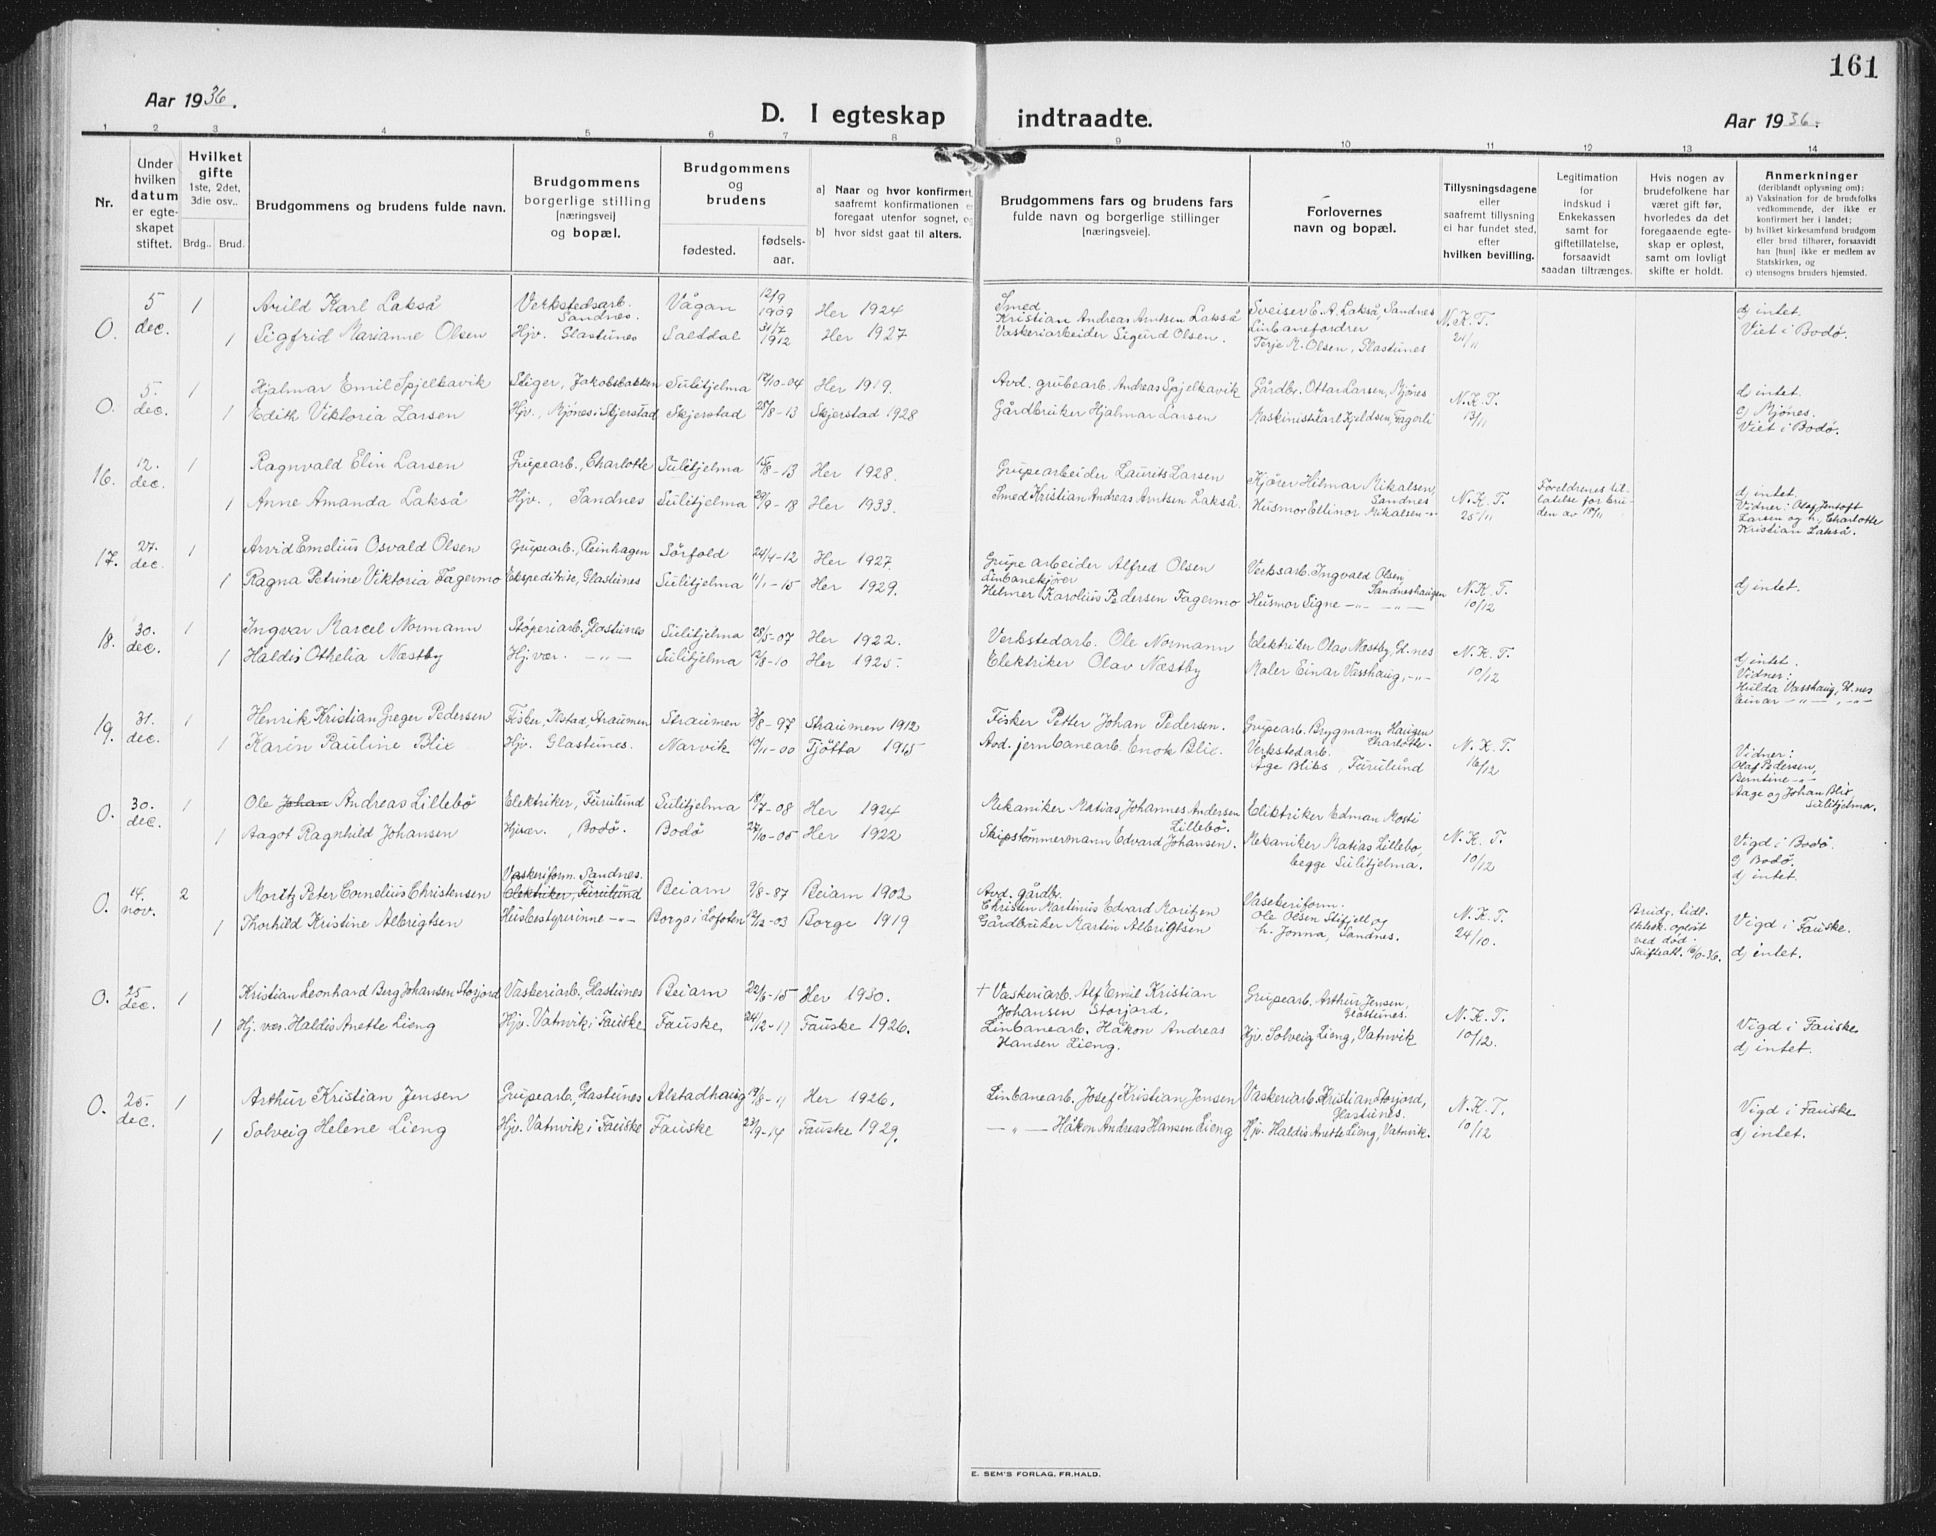 161
Aar 1936.
D. I egteskap indtraadte.
Aar 1936.
1 2 3 4 5 6 7 8 9 10 11 12 13 14
Nr.
Under hvilken datum er egteskapet stiftet.
Hvilket gifte 1ste, 2det, 3die osv..
Brdg.. Brud.
Brudgommens og brudens fulde navn.
Brudgommens borgerlige stilling [næringsvei] og bopæl.
Brudgommens og brudens
fødested.
fødsels-aar.
a] Naar og hvor konfirmert, saafremt konfirmationen er foregaat utenfor sognet, og
b] hvor sidst gaat til alters.
Brudgommens fars og brudens fars fulde navn og borgerlige stillinger [næringsveie].
Forlovernes navn og bopæl.
Tillysningsdagene eller saafremt tillysning ei har fundet sted, efter hvilken bevilling.
Legitimation for indskud i Enkekassen samt for giftetillatelse, forsaavidt saadan tiltrænges.
Hvis nogen av brudefolkene har været gift før, hvorledes da det foregaaende egteskap er opløst, samt om lovligt skifte er holdt.
Anmerkninger (deriblandt oplysning om):
a) Vaksination for de brudefolks vedkommende, der ikke er konfirmert her i landet;
b) hvilket kirkesamfund brudgom eller brud tilhører, forsaavidt han [hun] ikke er medlem av Statskirken, og
c) utensogns bruders hjemsted.
0. 5 dec. 1 Arild Karl Lakså Verkstedsarb. Sandnes. Vågan 12/9 1909 Her 1924 Smed Kristian Andreas Arntsen Lakså Sveiser E. A. Lakså, Sandnes N.K.T. 21/11 d) intet.
1 Sigfrid Marianne Olsen Hjv. Glastunes Saltdal 31/7 1912 Her 1927 Vaskeriarbeider Sigurd Olsen. Linbanefordrer Terje M. Olsen, Glastunes Viet i Bodø.
0. 5. dec. 1 Hjalmar Emil Spjelkavik Stiger, Jakobsbakken Sulitjelma 17/10-04 Her 1919. Avd. grubearb. Andreas Spjelkavik Gårdbr. Ottar Larsen, Mjönes N.K.T. 13/11 d) intet.
1 Edith Viktoria Larsen Hjv., Mjönes i Skjerstad Skjerstad 25/8-13 Skjerstad 1928 Gårdbruker Hjalmar Larsen Maskinist Karl Kjeldsen, Fagerli c) Mjönes. Viet i Bodø.
16. 12. dec. 1 Ragnvald Elin Larsen Grupearb., Charlotte Sulitjelma 15/8-13 Her 1928. Grupearbeider Laurits Larsen Kjörer Hilmar Mikalsen, Sandnes N.K.T. 25/11 Foreldrenes tillatelse for bruden av 18/11 d) intet.
1 Anne Amanda Lakså Hjv., Sandnes Sulitjelma 29/9-18 Her 1933. Smed Kristian Andreas Arntsen Lakså. Husmor Ellinor Mikalsen -"- Vidner: Olaf Jentoft Larsen og h. Charlotte Kristian Lakså.
17. 27. dec. 1 Arvid Emelius Osvald Olsen Grupearb., Reinhagen Sörfold 24/4-12 Her 1927. Grupearbeider Alfred Olsen Verksarb. Ingvald Olsen, Sandneshaugen N.K.T. 10/12 d) intet.
1 Ragna Petrine Viktoria Fagermo Ekspeditrise, Glastunes Sulitjelma 11/1-15 Her 1929. Linbanekjörer Helmer Karolius Pedersen Fagermo Husmor Signe -"- -"-
18. 30. dec. 1 Ingvar Marcel Normann Stöperiarb. Glastunes Sulitjelma 28/5-07 Her 1922. Verkstedarb. Ole Normann Elektriker Olav Næstby, Gl.nes N.K.T. 10/12 d) intet.
1 Haldis Othelia Næstby Hj. vær. -"- Sulitjelma 12/8-10 Her 1925- Elektriker Olav Næstby Maler Einar Vasshaug, -"- Vidner: Hulda Vasshaug, Gl.nes Einar -"- , -"-
19. 31. dec. 1 Henrik Kristian Greger Pedersen Fisker, Straumen Straumen 3/8-97 Straumen 1912 Fisker Petter Johan Pedersen. Grupearb. Brygmann Haugen Charlotte. N.K.T. 16/12 Vidner:
1 Karin Pauline Blix Hjv. Glastunes. Narvik 19/11-00 Tjötta 1915 Avd. jernbanearb. Enok Blix. Verkstedarb. Åge Bliks, Furulund Olaf Pedersen, Berntine -"- Aage og Johan Blix, Sulitjelma.
0. 30. dec. 1 Ole Johan Andreas Lillebö Elektriker, Furulund Sulitjelma 18/7-08 Her 1924 Mekaniker Matias Johannes Andersen Lillebö. Elektriker Edman Mosti N.K.T. 10/12 Vigd i Bodø.
1 Aagot Ragnhild Johansen Hjvær., Bodö. Bodö 27/10-05 Her 1922 Skipstömmermann Edvard Johansen. Mekaniker Matias Lillebö, begge Sulitjelma. c) Bodø. d) intet.
0. 14. nov. 2 Moritz Peter Cornelius Christensen Vaskeriform. Sandnes. Elektriker, Furulund Beiarn 9/8-87 Beiarn 1902 Avd. gårdbr. Christen Martinus Edvard Moritzen Vaskeriform. Ole Olsen Stifjell og h. Jonna, Sandnes. N.K.T. 24/10. Brudg. tidl. ektesk. oplöst ved död. Skifteatt. 16/10-36. Vigd i Fauske.
1 Thorhild Kristine Albrigtsen Husbestyrerinne -"- Borge i Lofoten 12/12-03 Borge 1919 Gårdbruker Martin Albrigtsen d) intet.
0. 25 dec. 1 Kristian Leonhard Berg Johansen Storjord Vaskeriarb., Glastunes Beiarn 22/6-15 Her 1930. + Vaskeriarb. Alf Emil Kristian Johansen Storjord. Grupearb. Arthur Jensen, Glastunes. N.K.T. 10/12. Vigd i Fauske
1 Hj. vær. Haldis Anette Lieng Hjv. Vatnvik i Fauske Fauske 24/12-11 Fauske 1926. Linbanearb. Håkon Andreas Hansen Lieng. Hjv. Solveig Lieng, Vatnvik d) intet.
0. 25. dec. 1 Arthur Kristian Jensen Grupearb, Glastunes Alstadhaug 19/8-11 Her 1926. Linbanearb. Josef Kristian Jensen Vaskeriarb. Kristian Storjord, Glastunes. N.K.T. 10/12 Vigd i Fauske
1 Solveig Helene Lieng Hjv. Vatnvik i Fauske Fauske 23/9-14 Fauske 1929. -"- Håkon Andreas Hansen Lieng Hjv. Haldis Anette Lieng, Vatnvik. d) intet.
E. SEM'S FORLAG, FR.HALD.